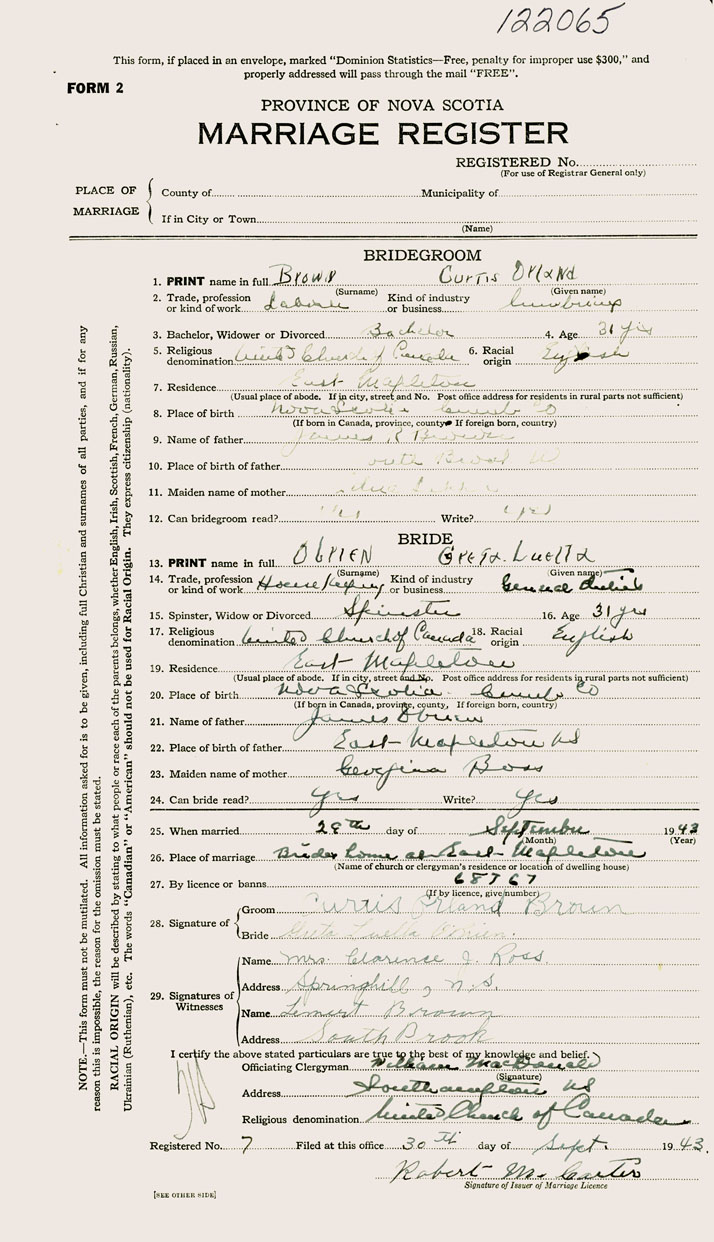 122065
This form, if placed in an envelope, marked "Dominion Statistics—Free, penalty for improper use $300," and
properly addressed will pass through the mail "FREE".
FORM 2
PROVINCE OF NOVA SCOTIA
MARRIAGE REGISTER
REGISTERED No.
(For use of Registrar General only)
PLACE OF MARRIAGE
County of Municipality of
If in City or Town
(Name)
BRIDEGROOM
1. PRINT name in full Brown Curtis Orland
(Surname) (Given name)
2. Trade, profession or kind of work Laborer Kind of industry or business Lumbering
3. Bachelor, Widower or Divorced Bachelor 4. Age 31 yrs
5. Religious denomination United Church of Canada 6. Racial origin English
7. Residence East Mapleton
(Usual place of abode. If in city, street and No. Post office address for residents in rural parts not sufficient)
8. Place of birth Nova Scotia Cumb Co
(If born in Canada, province, county. If foreign born, country)
9. Name of father James R Brown
10. Place of birth of father
11. Maiden name of mother
12. Can bridegroom read? Yes Write? Yes
BRIDE
13. PRINT name in full OBrien Greta Luella
(Surname) (Given name)
14. Trade, profession or kind of work House Keeping Kind of industry or business General duties
15. Spinster, Widow or Divorced Spinster 16. Age 31 yrs
17. Religious denomination United Church of Canada 18. Racial origin English
19. Residence East Mapleton
(Usual place of abode. If in city, street and No. Post office address for residents in rural parts not sufficient)
20. Place of birth Nova Scotia Cumb Co
(If born in Canada, province, county, If foreign born, country)
21. Name of father James Obrien
22. Place of birth of father East Mapleton NS
23. Maiden name of mother Georgina Boss
24. Can bride read? Yes Write? Yes
25. When married 29th day of September 1943
(Month) (Year)
26. Place of marriage Brides home at East Mapleton
(Name of church or clergyman's residence or location of dwelling house)
27. By licence or banns 68767
(If by licence, give number)
28. Signature of
Groom Curtis Orland Brown
Bride Greta Luella OBrien.
29. Signatures of Witnesses
Name Mrs. Clarence J. Ross.
Address Springhill, N.S.
Name Brown
Address South Brook
I certify the above stated particulars are true to the best of my knowledge and belief.
Officiating Clergyman William MacDonald
(Signature)
Address Southampton NS
Religious denomination United Church of Canada
Registered No. 7 Filed at this office 30th day of Sept. 1943.
Robert M. Carter
Signature of Issuer of Marriage Licence
[SEE OTHER SIDE]
NOTE.—This form must not be mutilated. All information asked for is to be given, including full Christian and surnames of all parties, and if for any
reason this is impossible, the reason for the omission must be stated.
RACIAL ORIGIN will be described by stating to what people or race each of the parents belongs, whether English, Irish, Scottish, French, German, Russian,
Ukrainian (Ruthenian), etc. The words "Canadian" or "American" should not be used for Racial Origin. They express citizenship (nationality).